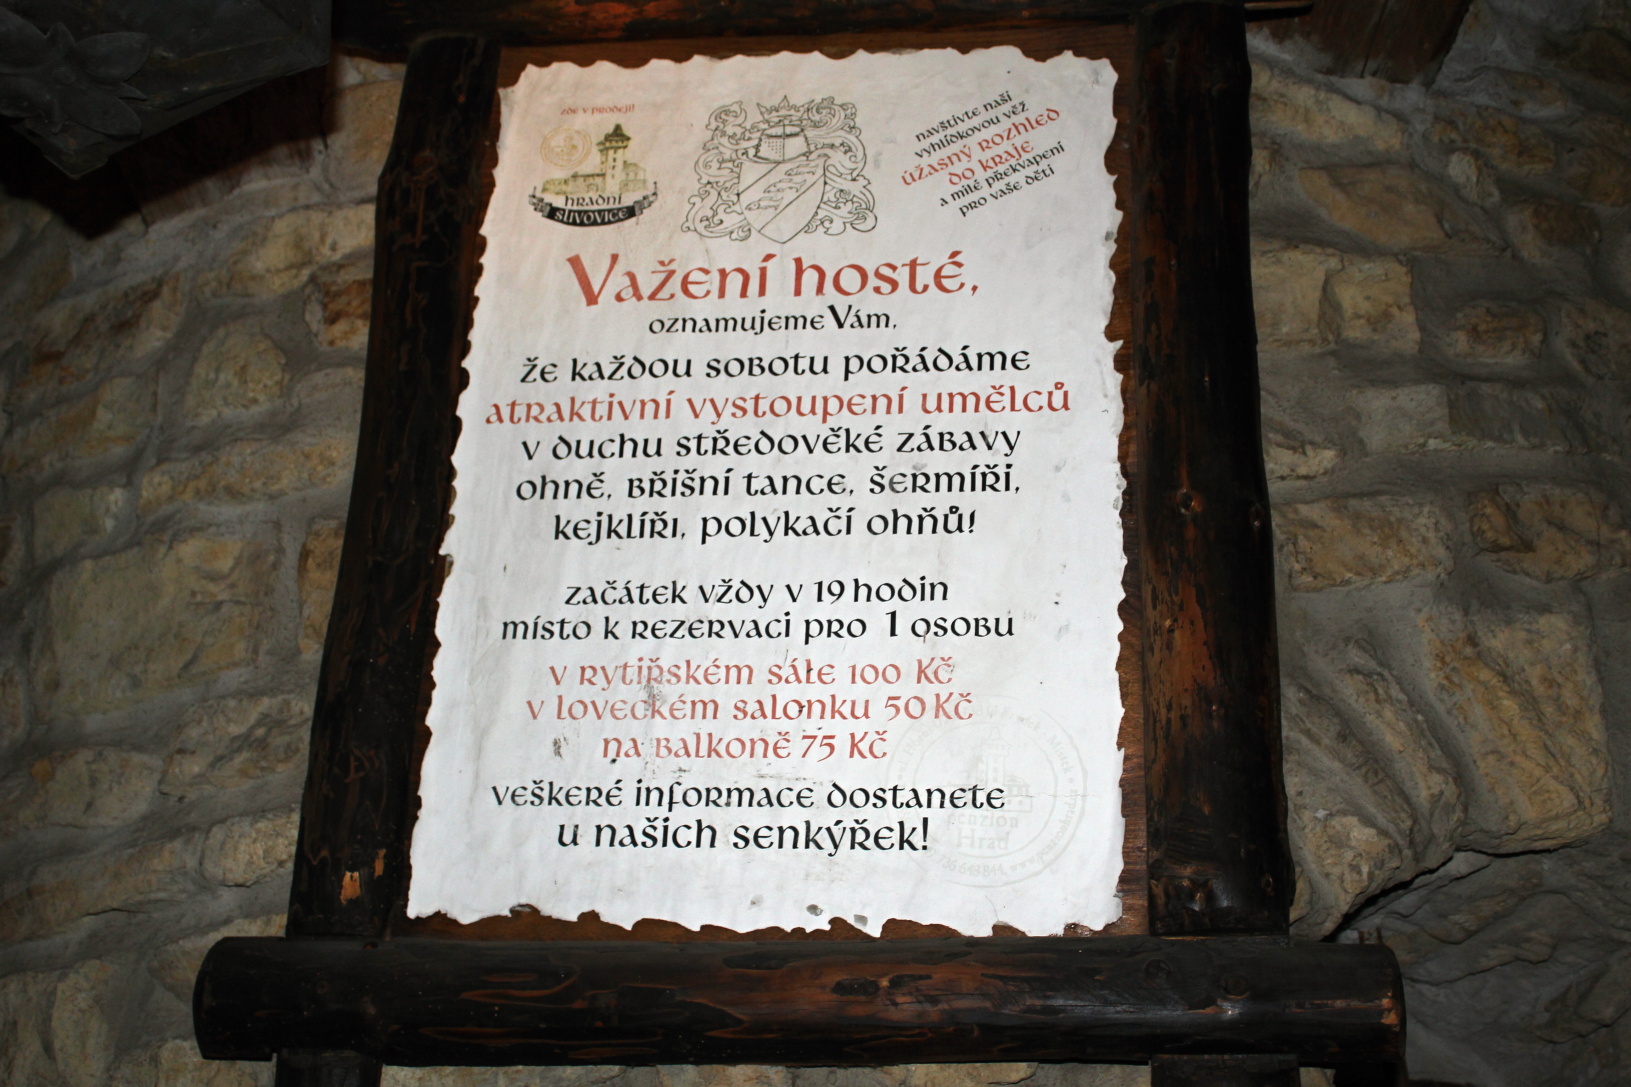 zde v prodeji!
hradní
slivovice
navštivte naší
vyhlídkovou věž
úžasný rozhled
do kraje
a milé překvapení
pro vaše děti
Važení hosté,
oznamujeme Vám,
že každou sobotu pořádáme
atraktivní vystoupení umělců
v duchu středověké zábavy
ohně, břišní tance, šermíři,
kejklíři, polykačí ohňů!
začátek vždy v 19 hodin
místo k rezervaci pro 1 osobu
v rytiřském sále 100 Kč
v loveckém salonku 50 Kč
na balkoně 75 Kč
veškeré informace dostanete
u našich senkýřek!
penzion
Hrad